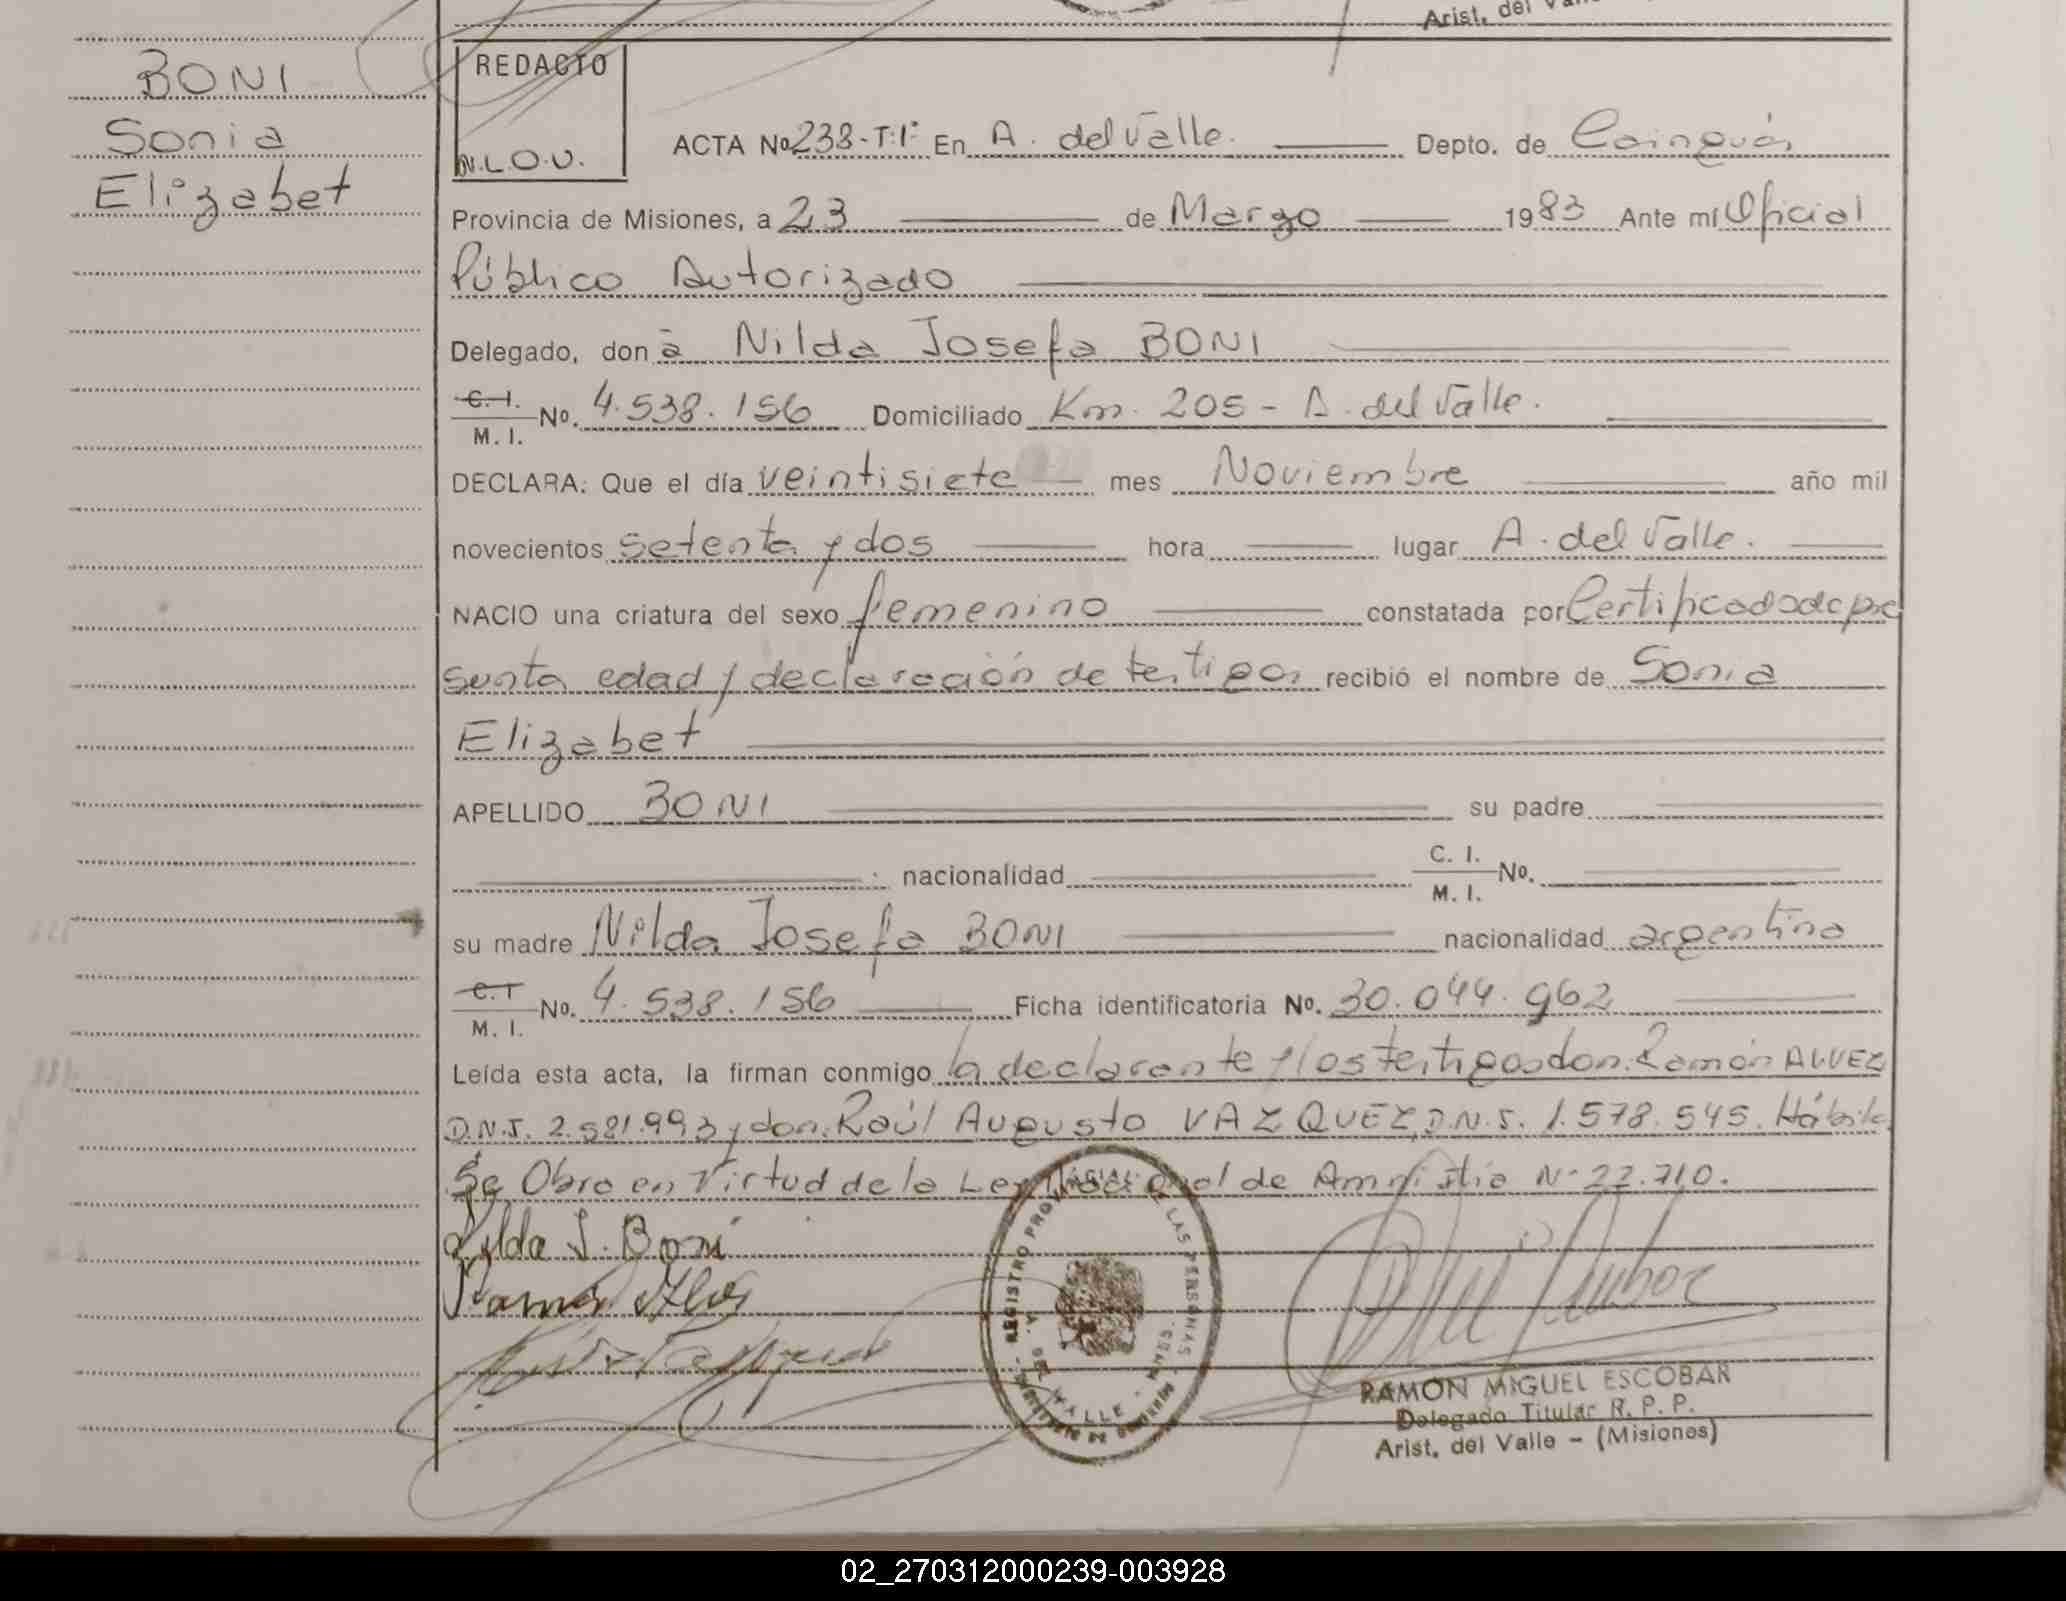 Arist. del
BONI
Sonia
Elizabet
REDACTO
N.L.O.V.
ACTA No 238-T:1º En A. del Valle. Depto. de Cainguás
Provincia de Misiones, a 23 de Marzo 1983 Ante mí Oficial
Público Autorizado
Delegado, don a Nilda Josefa BONI
C. I. M. I. No. 4.538.156 Domiciliado Km. 205 - A. del Valle.
DECLARA: Que el día veintisiete mes Noviembre año mil
novecientos setenta y dos hora lugar A. del Valle.
NACIO una criatura del sexo femenino constatada por Certificado de pre
sunta edad y declaración de testigos recibió el nombre de Sonia
Elizabet
APELLIDO BONI su padre
nacionalidad C. I. M. I. No.
su madre Nilda Josefa BONI nacionalidad argentina
C. I M. I. No. 4.538.156 Ficha identificatoria No. 30.044.962
Leída esta acta, la firman conmigo la declarante y los testigos don: Ramón ALVEZ
D.N.I. 2.581.993 y don: Raúl Augusto VAZQUEZ, D.N.I. 1.578.545. Hábiles
Se Obra en Virtud de la Ley Nacional de Amnistía Nº 22.710.
Nilda J. Boni
REGISTRO PROVINCIAL DE LAS PERSONAS
A. DEL VALLE - MNES.
RAMON MIGUEL ESCOBAR
Delegado Titular R. P. P.
Arist. del Valle - (Misiones)
02_270312000239-003928